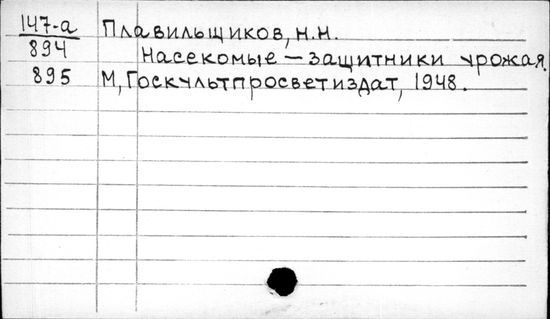 147-а Плавильщиков, Н.Н.
894 Насекомые — защитники урожая.
895 М, Госкультпросветиздат, 1948.